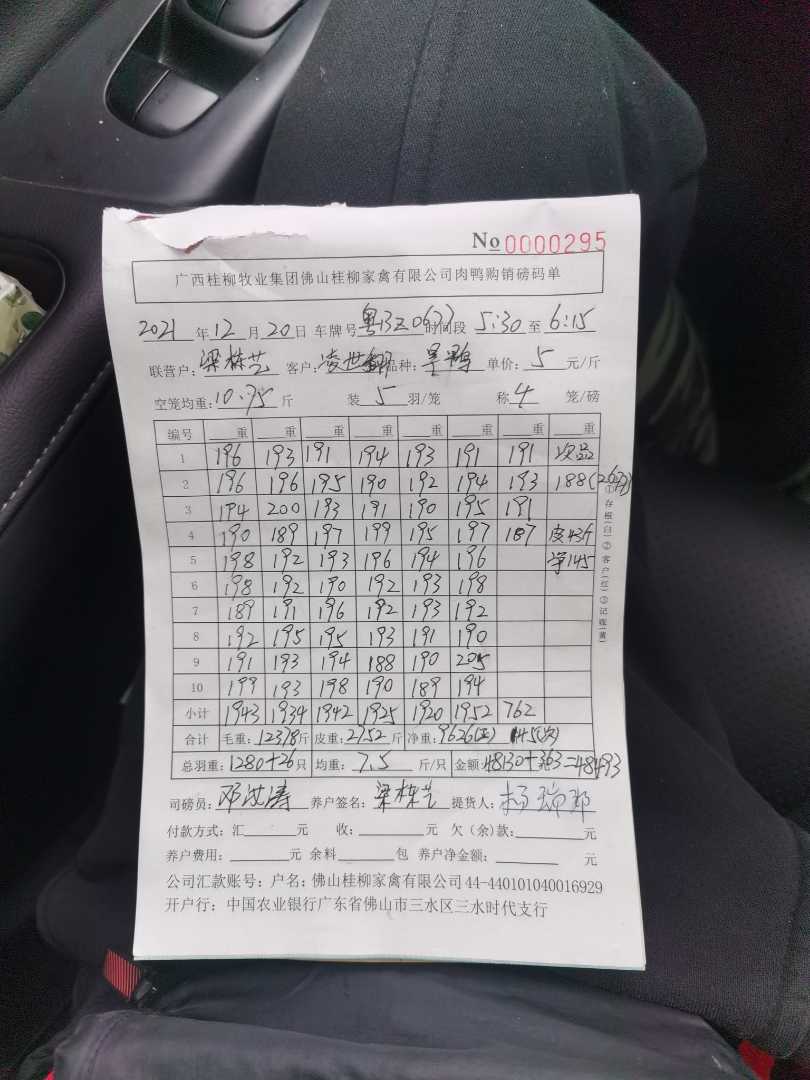 No 0000295
广西桂柳牧业集团佛山桂柳家禽有限公司肉鸭购销磅码单
2021 年 12 月 20 日 车牌号 粤 时间段 5:30 至 6:15
联营户: 梁栋艺 客户: 凌世 品种: 单价: 5 元/斤
空笼均重: 10.75 斤 装 5 羽/笼 称 4 笼/磅
编号 重 重 重 重 重 重 重 重
1 196 193 191 194 193 191 191 次品
2 196 196 195 190 192 194 193 188(26只)
3 194 200 193 191 190 195 191
4 190 189 197 199 195 197 187 皮43斤
5 198 192 193 196 194 196 净145
6 198 192 190 192 193 198
7 189 191 196 192 193 192
8 192 195 195 193 191 190
9 191 193 194 188 190 205
10 199 193 198 190 189 194
小计 1943 1934 1942 1925 1920 1952 762
合计 毛重: 12378 斤 皮重: 2752 斤 净重: 9626(正) 145(次)
总羽重: 1280+26 只 均重: 7.5 斤/只 金额: 48130+363=48493
①存根(白)②客户(红)③记账(黄)
司磅员: 邓 涛 养户签名: 梁栋艺 提货人: 杨瑞邦
付款方式: 汇 元 收: 元 欠(余)款: 元
养户费用: 元 余料 包 养户净金额: 元
公司汇款账号: 户名: 佛山桂柳家禽有限公司44-440101040016929
开户行: 中国农业银行广东省佛山市三水区三水时代支行